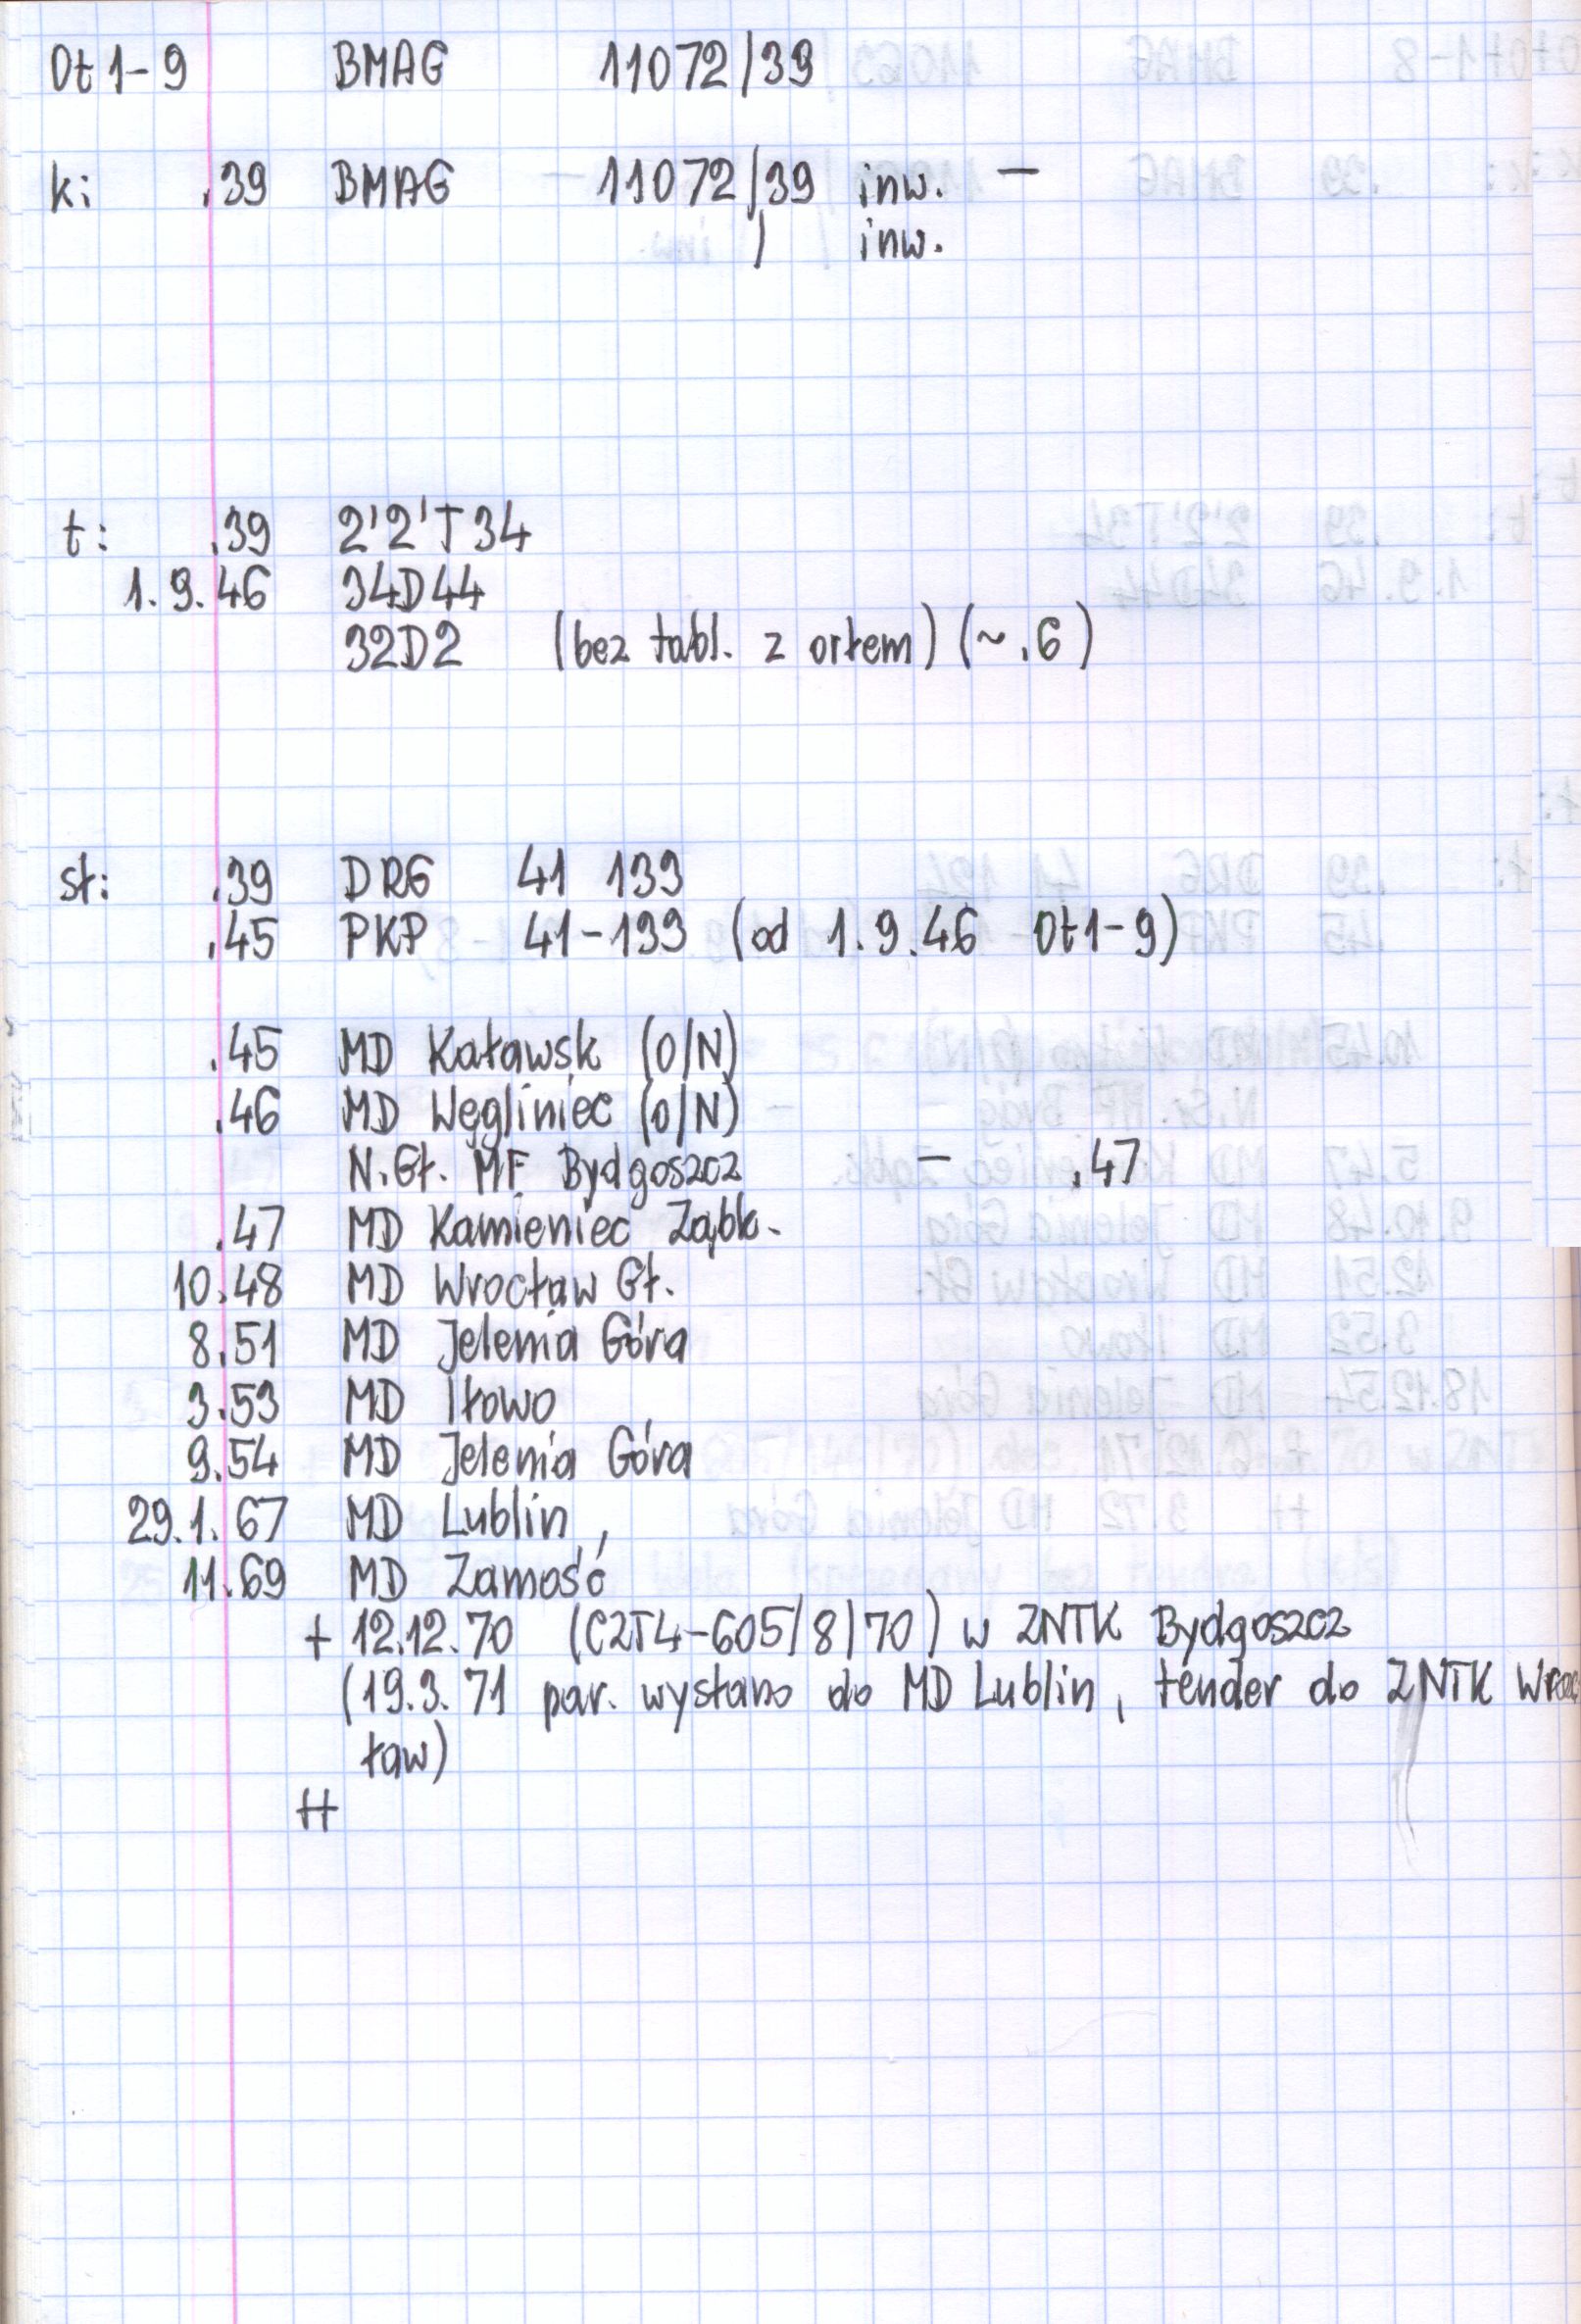 Ot1-9 BMAG 11072/39
k: .39 BMAG 11072/39 inw. —
/ inw.
t: .39 2'2'T34
1.9.46 34D44
32D2 (bez tabl. z orłem) (~.6)
st: .39 DRG 41 133
.45 PKP 41-133 (od 1.9.46 Ot1-9)
.45 MD Kaławsk (O/N)
.46 MD Węgliniec (O/N)
N.Gł. MF Bydgoszcz — .47
.47 MD Kamieniec Ząbk.
10.48 MD Wrocław Gł.
8.51 MD Jelenia Góra
3.53 MD Iłowo
9.54 MD Jelenia Góra
29.1.67 MD Lublin
11.69 MD Zamość
+ 12.12.70 (C2T4-605/8/70) w ZNTK Bydgoszcz
(19.3.71 par. wysłano do MD Lublin, tender do ZNTK Wroc
ław)
++